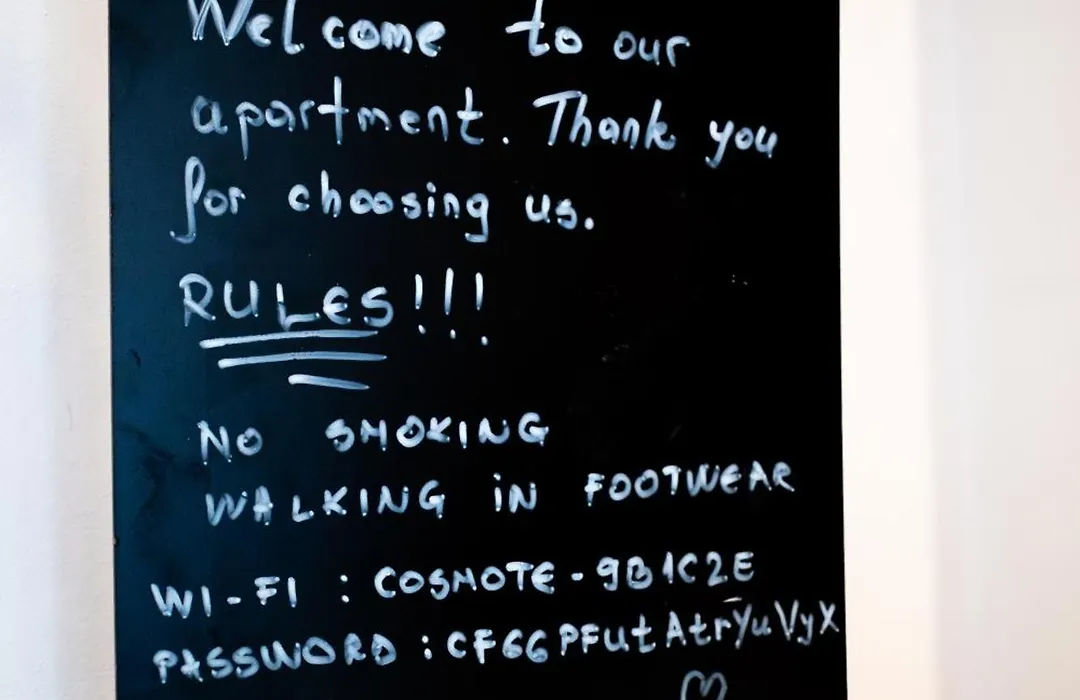 Welcome to our
apartment. Thank you
for choosing us.
RULES!!!
NO SMOKING
WALKING iN FOOTWEAR
WI-FI : COSMOTE - 9B1C2E
PASSWORD : CF66PFUtAtrYuVyX